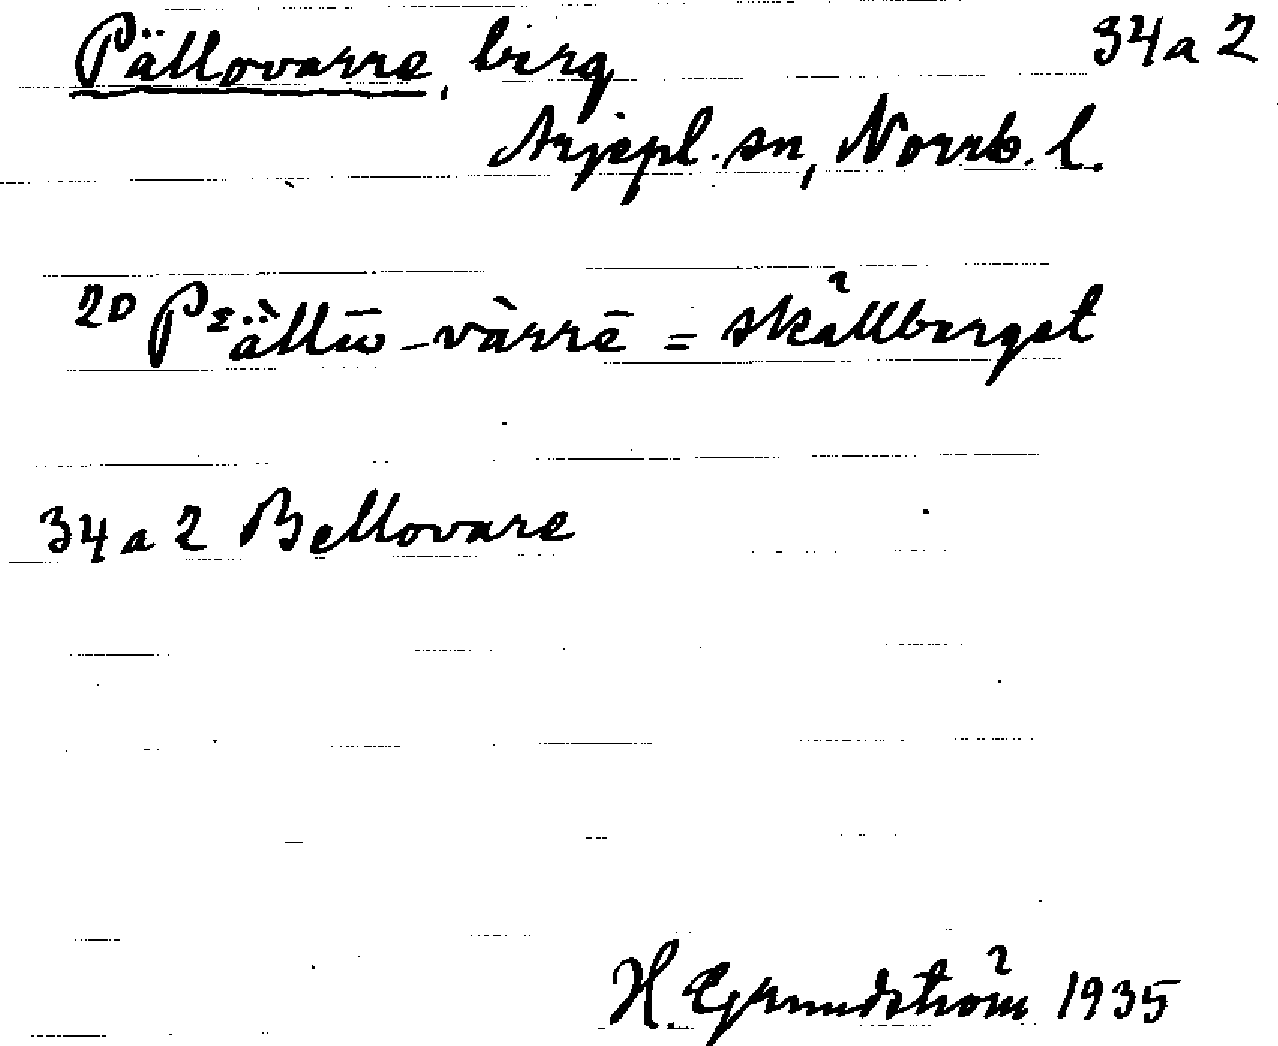 Pällovarre, berg 34a2
Arjepl. sn, Norrb. l.
2D Pᵋällō-vàrrē = skållberget
34a2 Bellovare
H. Grundström 1935